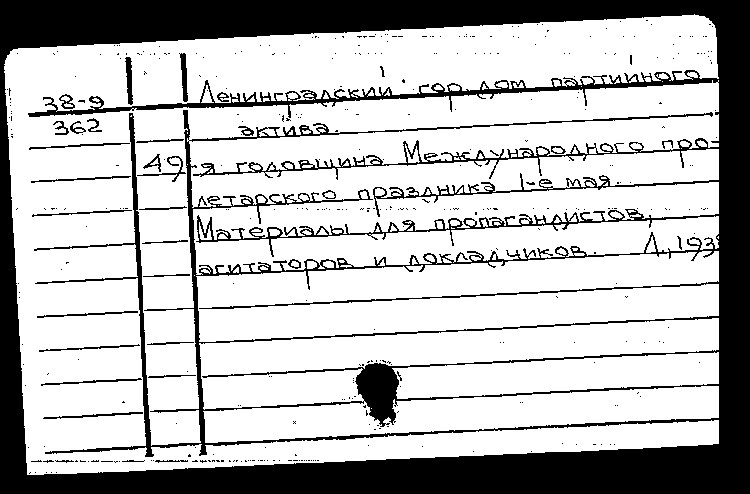 38-9 Ленинградский гор. дом партийного
362 актива.
49-я годовщина Международного про-
летарского праздника 1-е мая.
Материалы для пропагандистов,
агитаторов и докладчиков. Л., 1938